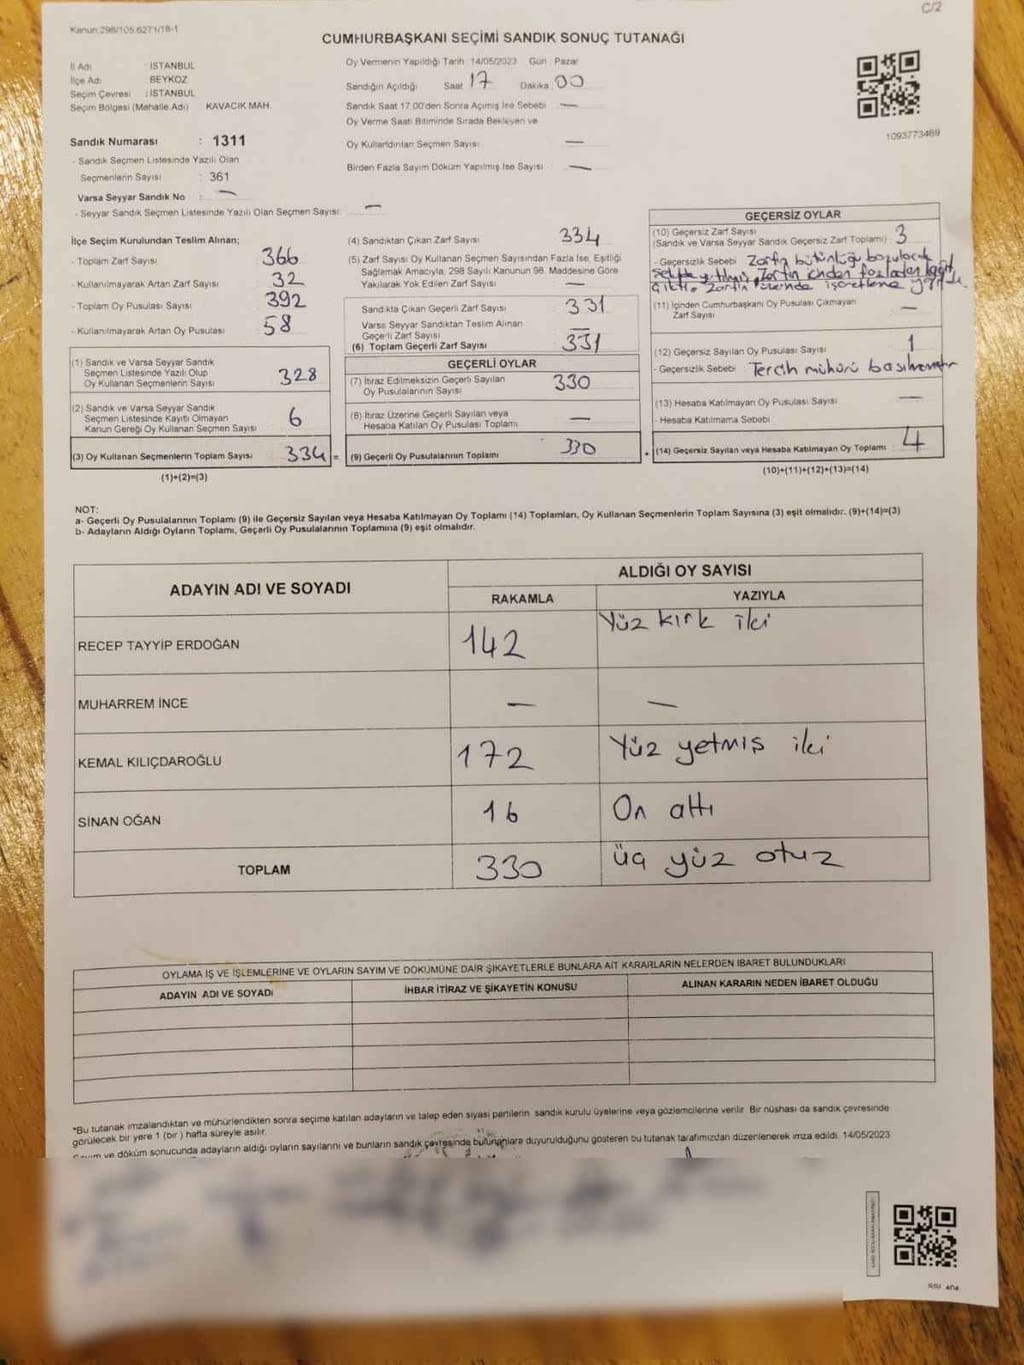 C/2
Kanun:298/105,6271/18-1
CUMHURBAŞKANI SEÇİMİ SANDIK SONUÇ TUTANAĞI
İl Adı : İSTANBUL
İlçe Adı : BEYKOZ
Seçim Çevresi : İSTANBUL
Seçim Bölgesi (Mahalle Adı) KAVACIK MAH.
Sandık Numarası : 1311
- Sandık Seçmen Listesinde Yazılı Olan
Seçmenlerin Sayısı : 361
Varsa Seyyar Sandık No : —
- Seyyar Sandık Seçmen Listesinde Yazılı Olan Seçmen Sayısı: —
Oy Vermenin Yapıldığı Tarih : 14/05/2023 Gün : Pazar
Sandığın Açıldığı Saat 17 Dakika 00
Sandık Saat 17.00'den Sonra Açımış İse Sebebi —
Oy Verme Saati Bitiminde Sırada Bekleyen ve
Oy Kullandırılan Seçmen Sayısı —
Birden Fazla Sayım Döküm Yapılmış İse Sayısı —
1093773469
İlçe Seçim Kurulundan Teslim Alınan;
- Toplam Zarf Sayısı 366
- Kullanılmayarak Artan Zarf Sayısı 32
- Toplam Oy Pusulası Sayısı 392
- Kullanılmayarak Artan Oy Pusulası 58
(1) Sandık ve Varsa Seyyar Sandık
Seçmen Listesinde Yazılı Olup
Oy Kullanan Seçmenlerin Sayısı 328
(2) Sandık ve Varsa Seyyar Sandık
Seçmen Listesinde Kayıtlı Olmayan
Kanun Gereği Oy Kullanan Seçmen Sayısı 6
(3) Oy Kullanan Seçmenlerin Toplam Sayısı 334 =
(1)+(2)=(3)
(4) Sandıktan Çıkan Zarf Sayısı 334
(5) Zarf Sayısı Oy Kullanan Seçmen Sayısından Fazla İse, Eşitliği
Sağlamak Amacıyla; 298 Sayılı Kanunun 98. Maddesine Göre
Yakılarak Yok Edilen Zarf Sayısı —
Sandıkta Çıkan Geçerli Zarf Sayısı 331
Varsa Seyyar Sandıktan Teslim Alınan
Geçerli Zarf Sayısı —
(6) Toplam Geçerli Zarf Sayısı 331
GEÇERLİ OYLAR
(7) İtiraz Edilmeksizin Geçerli Sayılan
Oy Pusulalarının Sayısı 330
(8) İtiraz Üzerine Geçerli Sayılan veya
Hesaba Katılan Oy Pusulası Toplamı —
(9) Geçerli Oy Pusulalarının Toplamı 330 +
GEÇERSİZ OYLAR
(10) Geçersiz Zarf Sayısı
(Sandık ve Varsa Seyyar Sandık Geçersiz Zarf Toplamı) 3
- Geçersizlik Sebebi Zarfın bütünlüğü bozulacak
şekilde yırtılmış, Zarfın içinden fazladan kağıt
çıktı. Zarfın üzerinde işaretleme
(11) İçinden Cumhurbaşkanı Oy Pusulası Çıkmayan
Zarf Sayısı —
(12) Geçersiz Sayılan Oy Pusulası Sayısı 1
- Geçersizlik Sebebi Tercih mühürü basılmamıştır
(13) Hesaba Katılmayan Oy Pusulası Sayısı —
- Hesaba Katılmama Sebebi
(14) Geçersiz Sayılan veya Hesaba Katılmayan Oy Toplamı 4
(10)+(11)+(12)+(13)=(14)
NOT:
a- Geçerli Oy Pusulalarının Toplamı (9) ile Geçersiz Sayılan veya Hesaba Katılmayan Oy Toplamı (14) Toplamları, Oy Kullanan Seçmenlerin Toplam Sayısına (3) eşit olmalıdır. (9)+(14)=(3)
b- Adayların Aldığı Oyların Toplamı, Geçerli Oy Pusulalarının Toplamına (9) eşit olmalıdır.
ADAYIN ADI VE SOYADI
ALDIĞI OY SAYISI
RAKAMLA YAZIYLA
RECEP TAYYİP ERDOĞAN 142 Yüz kırk iki
MUHARREM İNCE — —
KEMAL KILIÇDAROĞLU 172 Yüz yetmiş iki
SİNAN OĞAN 16 On altı
TOPLAM 330 üç yüz otuz
OYLAMA İŞ VE İŞLEMLERİNE VE OYLARIN SAYIM VE DÖKÜMÜNE DAİR ŞİKAYETLERLE BUNLARA AİT KARARLARIN NELERDEN İBARET BULUNDUKLARI
ADAYIN ADI VE SOYADI İHBAR İTİRAZ VE ŞİKAYETİN KONUSU ALINAN KARARIN NEDEN İBARET OLDUĞU
*Bu tutanak imzalandıktan ve mühürlendikten sonra seçime katılan adayların ve talep eden siyasi partilerin sandık kurulu üyelerine veya gözlemcilerine verilir. Bir nüshası da sandık çevresinde
görülecek bir yere 1 (bir) hafta süreyle asılır.
Sayım ve döküm sonucunda adayların aldığı oyların sayılarını ve bunların sandık çevresinde bulunanlara duyurulduğunu gösteren bu tutanak tarafımızdan düzenlenerek imza edildi. 14/05/2023